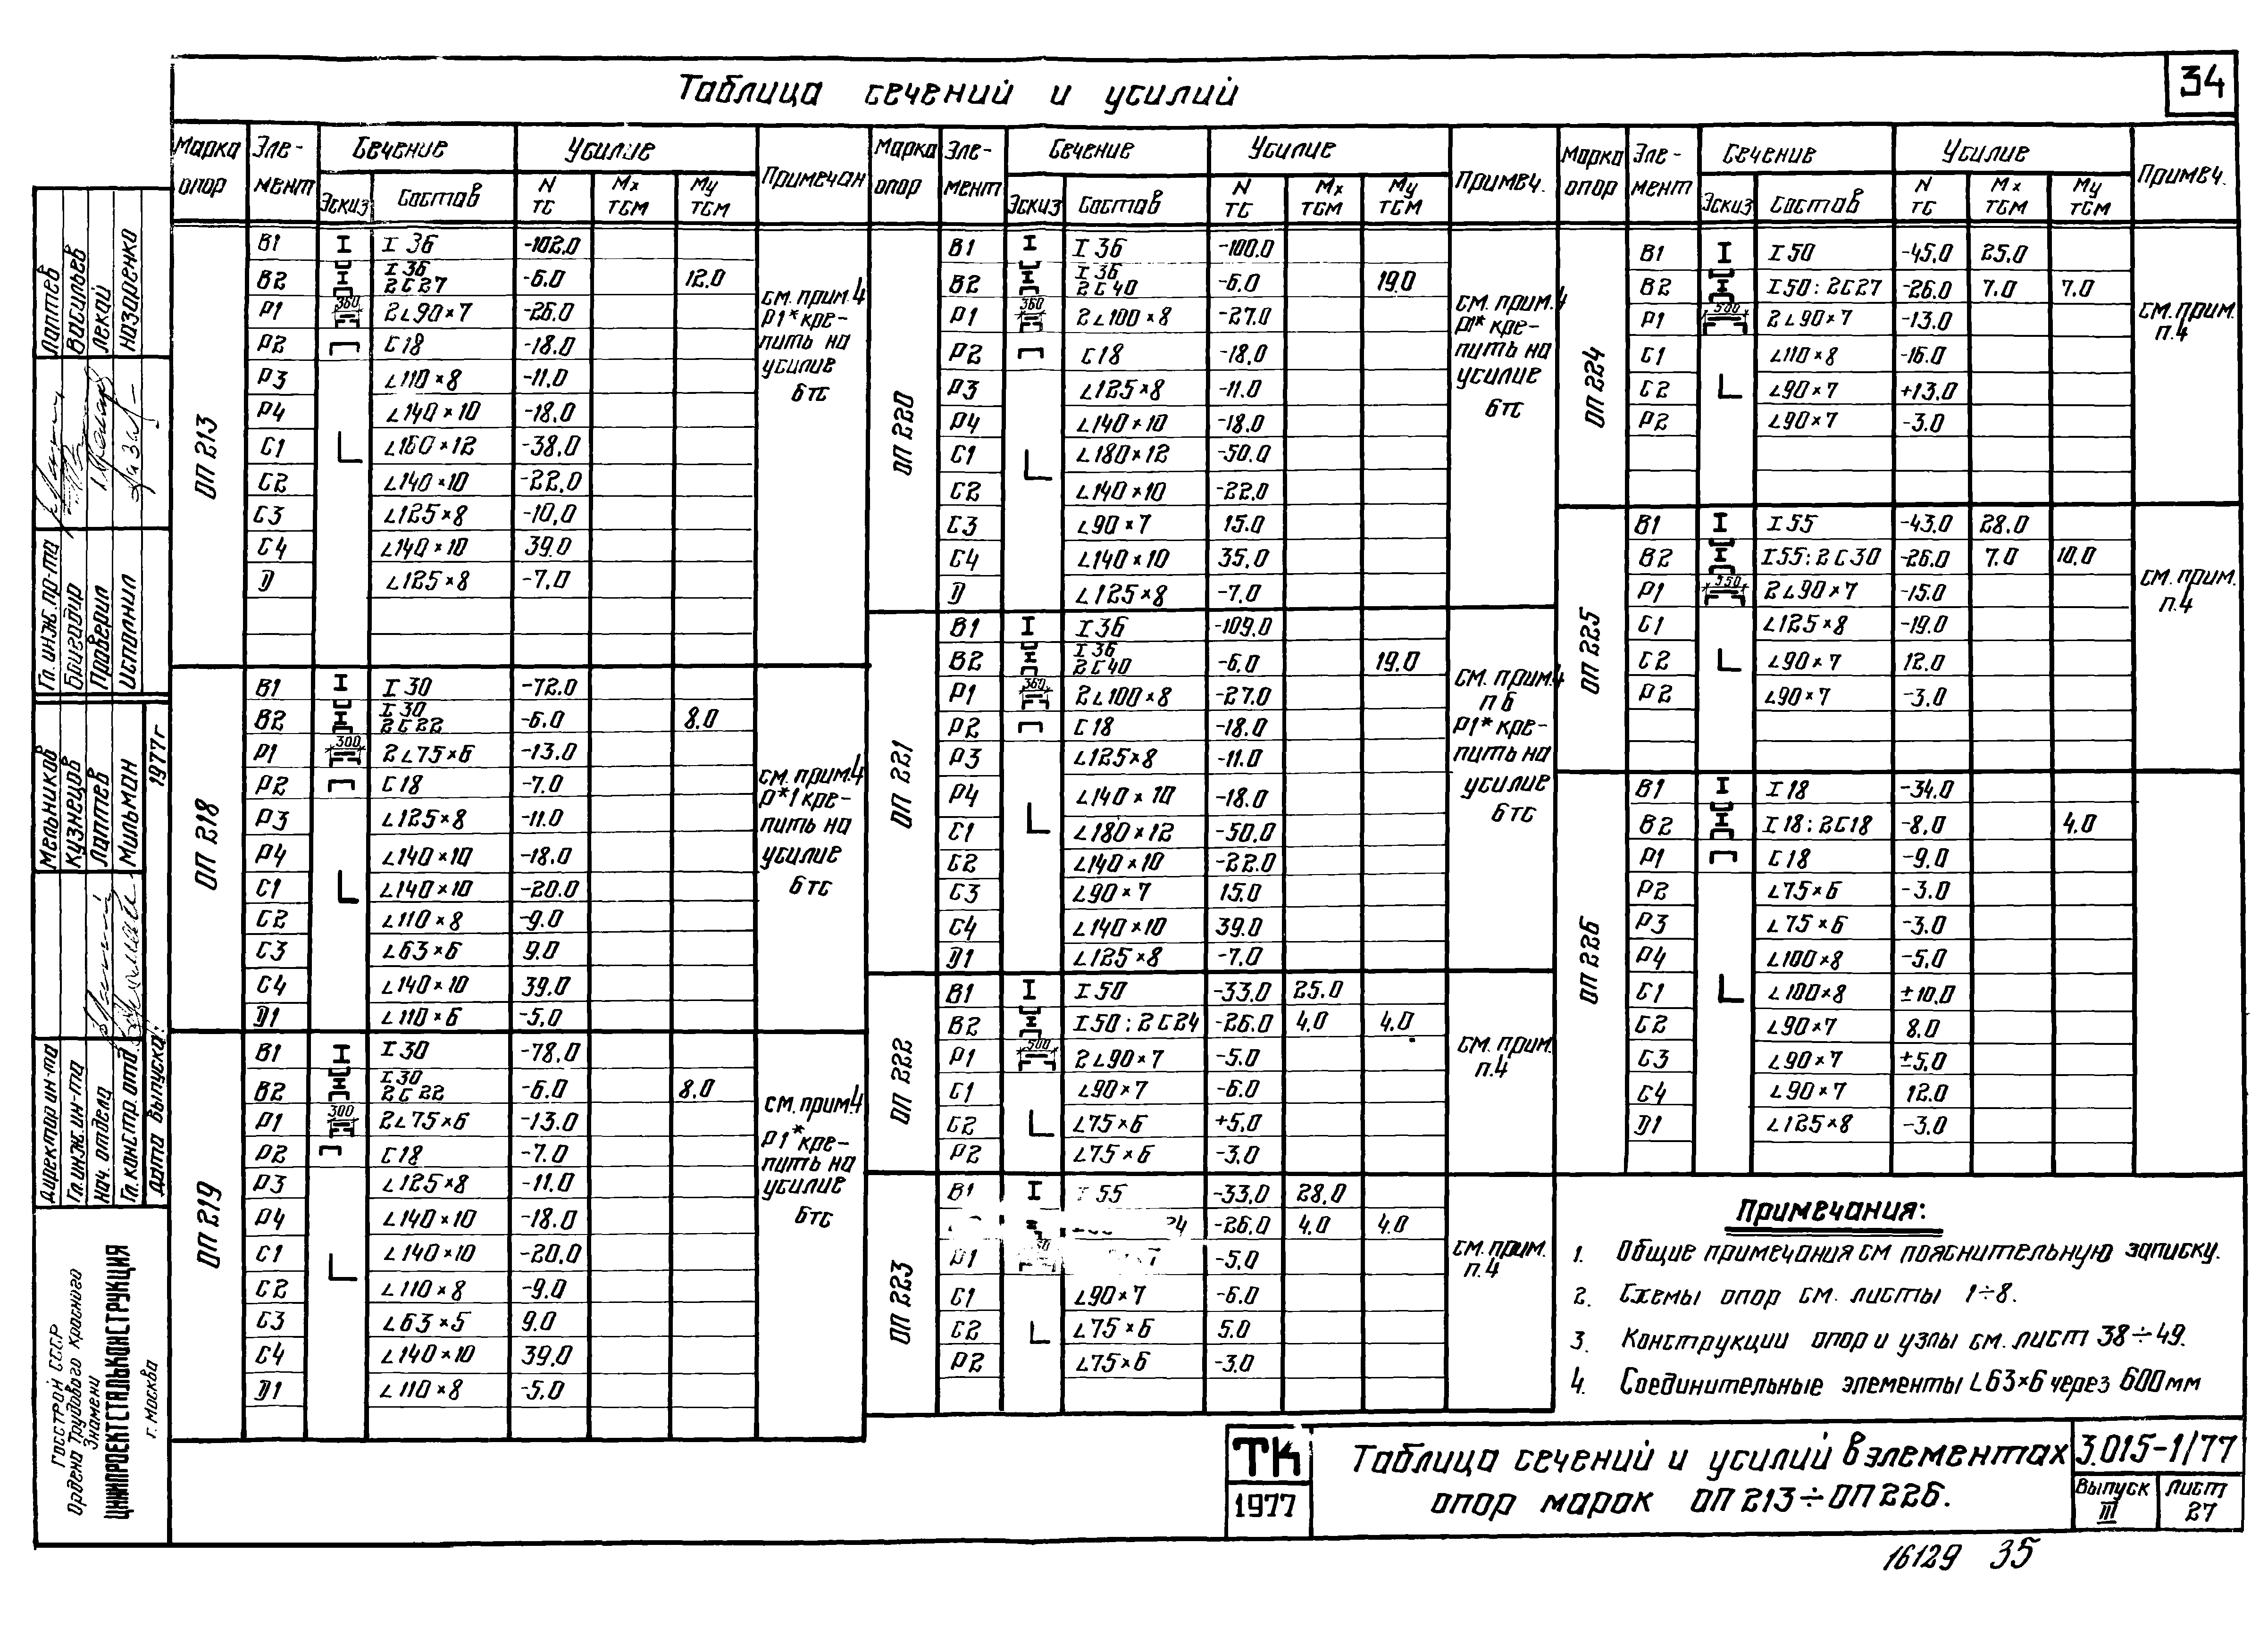 Таблица сечений и усилий
34
Марка опор Эле-мент Сечение Усилие Примечан
Эскиз Состав N тс Mx тсм My тсм
ОП 213
В1 I 36 -102.0
В2 I 36 2С27 -6.0 12.0
Р1 360 2L90×7 -26.0
Р2 С18 -18.0
Р3 L110×8 -11.0
Р4 L140×10 -18.0
С1 L160×12 -38.0
С2 L140×10 -22.0
С3 L125×8 -10.0
С4 L140×10 39.0
D L125×8 -7.0
см. прим.4
Р1* кре-
пить на
усилие
6тс
ОП 218
В1 I 30 -72.0
В2 I 30 2С22 -6.0 8.0
Р1 300 2L75×6 -13.0
Р2 С18 -7.0
Р3 L125×8 -11.0
Р4 L140×10 -18.0
С1 L140×10 -20.0
С2 L110×8 -9.0
С3 L63×6 9.0
С4 L140×10 39.0
D1 L110×6 -5.0
см. прим.4
Р*1 кре-
пить на
усилие
6тс
ОП 219
В1 I 30 -78.0
В2 I 30 2С22 -6.0 8.0
Р1 300 2L75×6 -13.0
Р2 С18 -7.0
Р3 L125×8 -11.0
Р4 L140×10 -18.0
С1 L140×10 -20.0
С2 L110×8 -9.0
С3 L63×5 9.0
С4 L140×10 39.0
D1 L110×8 -5.0
см. прим.4
Р1* кре-
пить на
усилие
6тс
Марка опор Эле-мент Сечение Усилие Примеч.
Эскиз Состав N тс Mx тсм My тсм
ОП 220
В1 I 36 -100.0
В2 I 36 2С40 -6.0 19.0
Р1 360 2L100×8 -27.0
Р2 С18 -18.0
Р3 L125×8 -11.0
Р4 L140×10 -18.0
С1 L180×12 -50.0
С2 L140×10 -22.0
С3 L90×7 15.0
С4 L140×10 35.0
D L125×8 -7.0
см. прим.4
Р1* кре-
пить на
усилие
6тс
ОП 221
В1 I 36 -109.0
В2 I 36 2С40 -6.0 19.0
Р1 360 2L100×8 -27.0
Р2 С18 -18.0
Р3 L125×8 -11.0
Р4 L140×10 -18.0
С1 L180×12 -50.0
С2 L140×10 -22.0
С3 L90×7 15.0
С4 L140×10 39.0
D1 L125×8 -7.0
см. прим.4
п 6
Р1* кре-
пить на
усилие
6тс
ОП 222
В1 I 50 -33.0 25.0
В2 I 50 : 2С24 -26.0 4.0 4.0
Р1 500 2L90×7 -5.0
С1 L90×7 -6.0
С2 L75×6 +5.0
Р2 L75×6 -3.0
см. прим.
п.4
ОП 223
В1 I 55 -33.0 28.0
24 -26.0 4.0 4.0
Р1 -5.0
С1 L90×7 -6.0
С2 L75×6 5.0
Р2 L75×6 -3.0
см. прим.
п.4
Марка опор Эле-мент Сечение Усилие Примеч.
Эскиз Состав N тс Mx тсм My тсм
ОП 224
В1 I 50 -45.0 25.0
В2 I 50 : 2С27 -26.0 7.0 7.0
Р1 500 2L90×7 -13.0
С1 L110×8 -16.0
С2 L90×7 +13.0
Р2 L90×7 -3.0
см. прим.
п.4
ОП 225
В1 I 55 -43.0 28.0
В2 I 55 : 2С30 -26.0 7.0 10.0
Р1 550 2L90×7 -15.0
С1 L125×8 -19.0
С2 L90×7 12.0
Р2 L90×7 -3.0
см. прим.
п.4
ОП 226
В1 I 18 -34.0
В2 I 18 : 2С18 -8.0 4.0
Р1 С18 -9.0
Р2 L75×6 -3.0
Р3 L75×6 -3.0
Р4 L100×8 -5.0
С1 L100×8 ±10.0
С2 L90×7 8.0
С3 L90×7 ±5.0
С4 L90×7 12.0
D1 L125×8 -3.0
Примечания:
1. Общие примечания см пояснительную записку.
2. Схемы опор см. листы 1÷8.
3. Конструкции опор и узлы см. лист 38÷49.
4. Соединительные элементы L63×6 через 600мм
ТК
1977
Таблица сечений и усилий в элементах
опор марок ОП213÷ОП226.
3.015-1/77
Выпуск
III
Лист
27
16129 35
Гл. инж. пр-та Лаптев
Бригадир Васильев
Проверил Лекай
Исполнил Назаренко
Директор ин-та Мельников
Гл. инж. ин-та Кузнецов
Нач. отдела Лаптев
Гл. констр. отд. Мильман
Дата выпуска: 1977г
Госстрой СССР
Ордена Трудового Красного
Знамени
ЦНИИПРОЕКТСТАЛЬКОНСТРУКЦИЯ
г. Москва